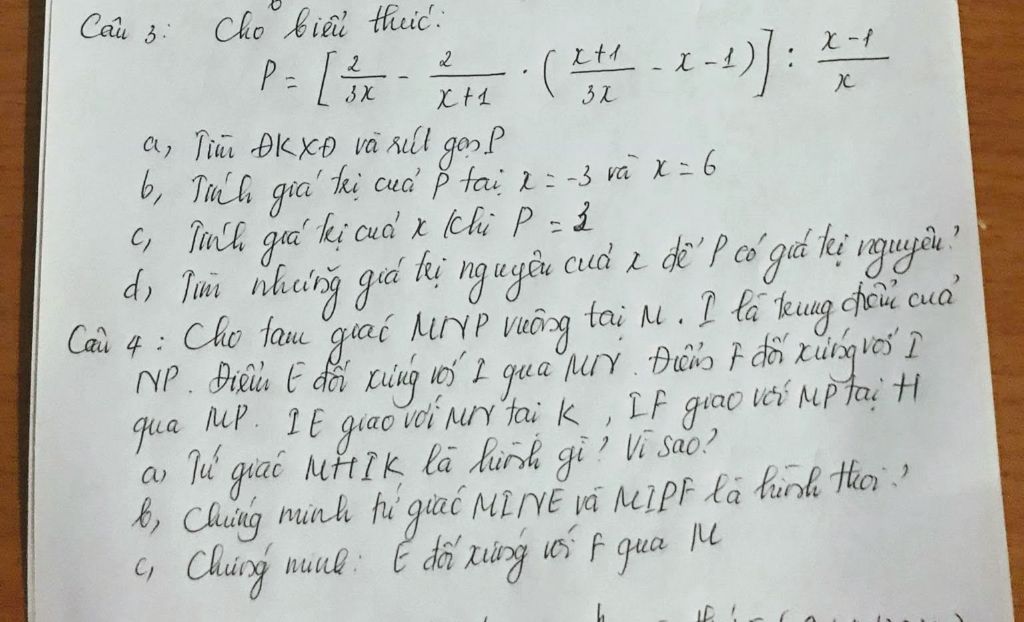 Câu 3: Cho biểu thức:
P = [ 2/3x - 2/x+1 . ( x+1/3x - x - 1 ) ] : x-1/x
a, Tìm ĐKXĐ và rút gọn P
b, Tính giá trị của P tại x = -3 và x = 6
c, Tính giá trị của x khi P =
d, Tìm những giá trị nguyên của x để P có giá trị nguyên?
Câu 4: Cho tam giác MNP vuông tại M. I là trung điểm của
NP. Điểm E đối xứng với I qua MN. Điểm F đối xứng với I
qua MP. IE giao với MN tại K, IF giao với MP tại H
a, Tứ giác MHIK là hình gì? Vì sao?
b, Chứng minh tứ giác MINE và MIPF là hình thoi?
c, Chứng minh: E đối xứng với F qua M